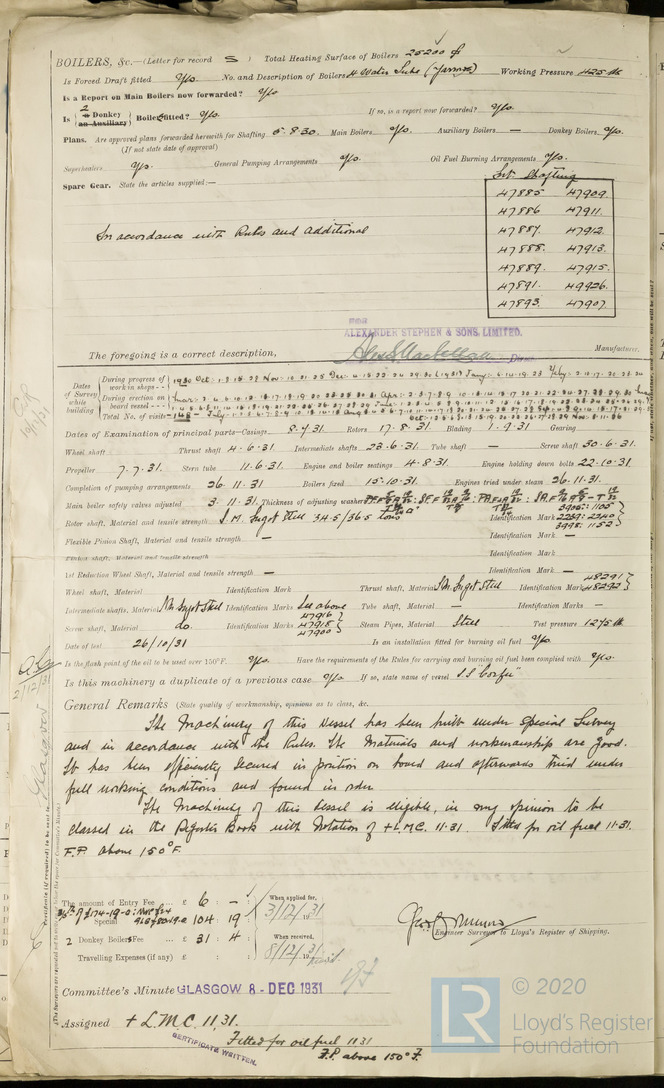 BOILERS, &c.—(Letter for record S ) Total Heating Surface of Boilers 25200 sq ft
Is Forced Draft fitted Yes. No. and Description of Boilers 4 Water Tube (Yarrow) Working Pressure 425 lb
Is a Report on Main Boilers now forwarded? Yes
Is { 2 a Donkey / an Auxiliary } Boilers fitted? Yes. If so, is a report now forwarded? Yes.
Plans. Are approved plans forwarded herewith for Shafting 5.8.30. Main Boilers Yes. Auxiliary Boilers — Donkey Boilers Yes.
(If not state date of approval)
Superheaters Yes. General Pumping Arrangements Yes. Oil Fuel Burning Arrangements Yes.
Spare Gear. State the articles supplied:—
Int Shafting
47885 47909.
47886 47911.
47887. 47912.
47888. 47913.
47889. 47915.
47891. 49926.
47893. 47907
In accordance with Rules and additional
FOR
ALEXANDER STEPHEN & SONS, LIMITED.
The foregoing is a correct description, Director Manufacturer.
Dates of Survey while building
During progress of work in shops - -
During erection on board vessel - - -
Total No. of visits
Dates of Examination of principal parts—Casings 8.7.31. Rotors 17.8.31. Blading 1.9.31 Gearing
Wheel shaft Thrust shaft 4.6.31. Intermediate shafts 23.6.31. Tube shaft — Screw shaft 30.6.31.
Propeller 7.7.31. Stern tube 11.6.31. Engine and boiler seatings 4.8.31. Engine holding down bolts 22.10.31
Completion of pumping arrangements 26.11.31 Boilers fixed 15.10.31. Engines tried under steam 26.11.31.
Main boiler safety valves adjusted 3.11.31. Thickness of adjusting washers
Rotor shaft, Material and tensile strength S.M. Ingot Steel 34.5/36.5 tons Identification Mark 3905: 1105 2239: 2240 3998: 1152
Flexible Pinion Shaft, Material and tensile strength — Identification Mark —
Pinion shaft, Material and tensile strength Identification Mark
1st Reduction Wheel Shaft, Material and tensile strength — Identification Mark —
Wheel shaft, Material Identification Mark Thrust shaft, Material S.M. Ingot Steel Identification Mark 48291 48292
Intermediate shafts, Material S.M. Ingot Steel Identification Marks See above Tube shaft, Material — Identification Marks —
Screw shaft, Material do. Identification Marks 47916 47918 47900 Steam Pipes, Material Steel Test pressure 1275 lb
Date of test 26/10/31 Is an installation fitted for burning oil fuel Yes
Is the flash point of the oil to be used over 150°F. Yes. Have the requirements of the Rules for carrying and burning oil fuel been complied with Yes.
Is this machinery a duplicate of a previous case Yes If so, state name of vessel S.S "Corfu"
General Remarks (State quality of workmanship, opinions as to class, &c.
The Machinery of this Vessel has been built under Special Survey
and in accordance with the Rules. The Materials and workmanship are good.
It has been efficiently secured in position on board and afterwards tried under
full working conditions and found in order.
The Machinery of this Vessel is eligible, in my opinion to be
classed in the Register Book with Notation of + L.M.C. 11.31. Fitted for oil fuel 11.31.
F.P. above 150°F.
The amount of Entry Fee .. £ 6 : - : When applied for,
Special £ 104 : 19 3/12/1931
2 Donkey Boilers Fee ... £ 31 : 4 : When received,
Travelling Expenses (if any) £ : : 8/12/1931
Engineer Surveyor to Lloyd's Register of Shipping.
Committee's Minute GLASGOW 8 - DEC 1931
Assigned + L.M.C. 11.31.
Fitted for oil fuel 11.31
F.P. above 150°F.
CERTIFICATE WRITTEN.
2/12/31
Glasgow
LR
© 2020
Lloyd's Register
Foundation